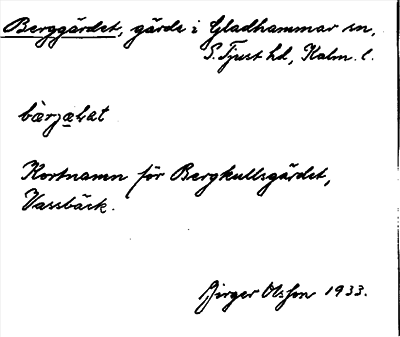 Berggärdet, gärde i Gladhammar sn,
S. Tjust hd, Kalm. l.
Kortnamn för Bergkullsgärdet,
Vassbäck.
Birger Olsson 1933.